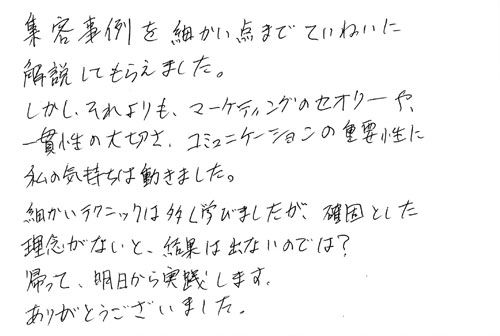 集客事例を細かい点までていねいに
解説してもらえました。
しかし、それよりも、マーケティングのセオリーや、
一貫性の大切さ、コミュニケーションの重要性に
私の気持ちは動きました。
細かいテクニックは多く学びましたが、確固とした
理念がないと、結果は出ないのでは?
帰って、明日から実践します。
ありがとうございました。